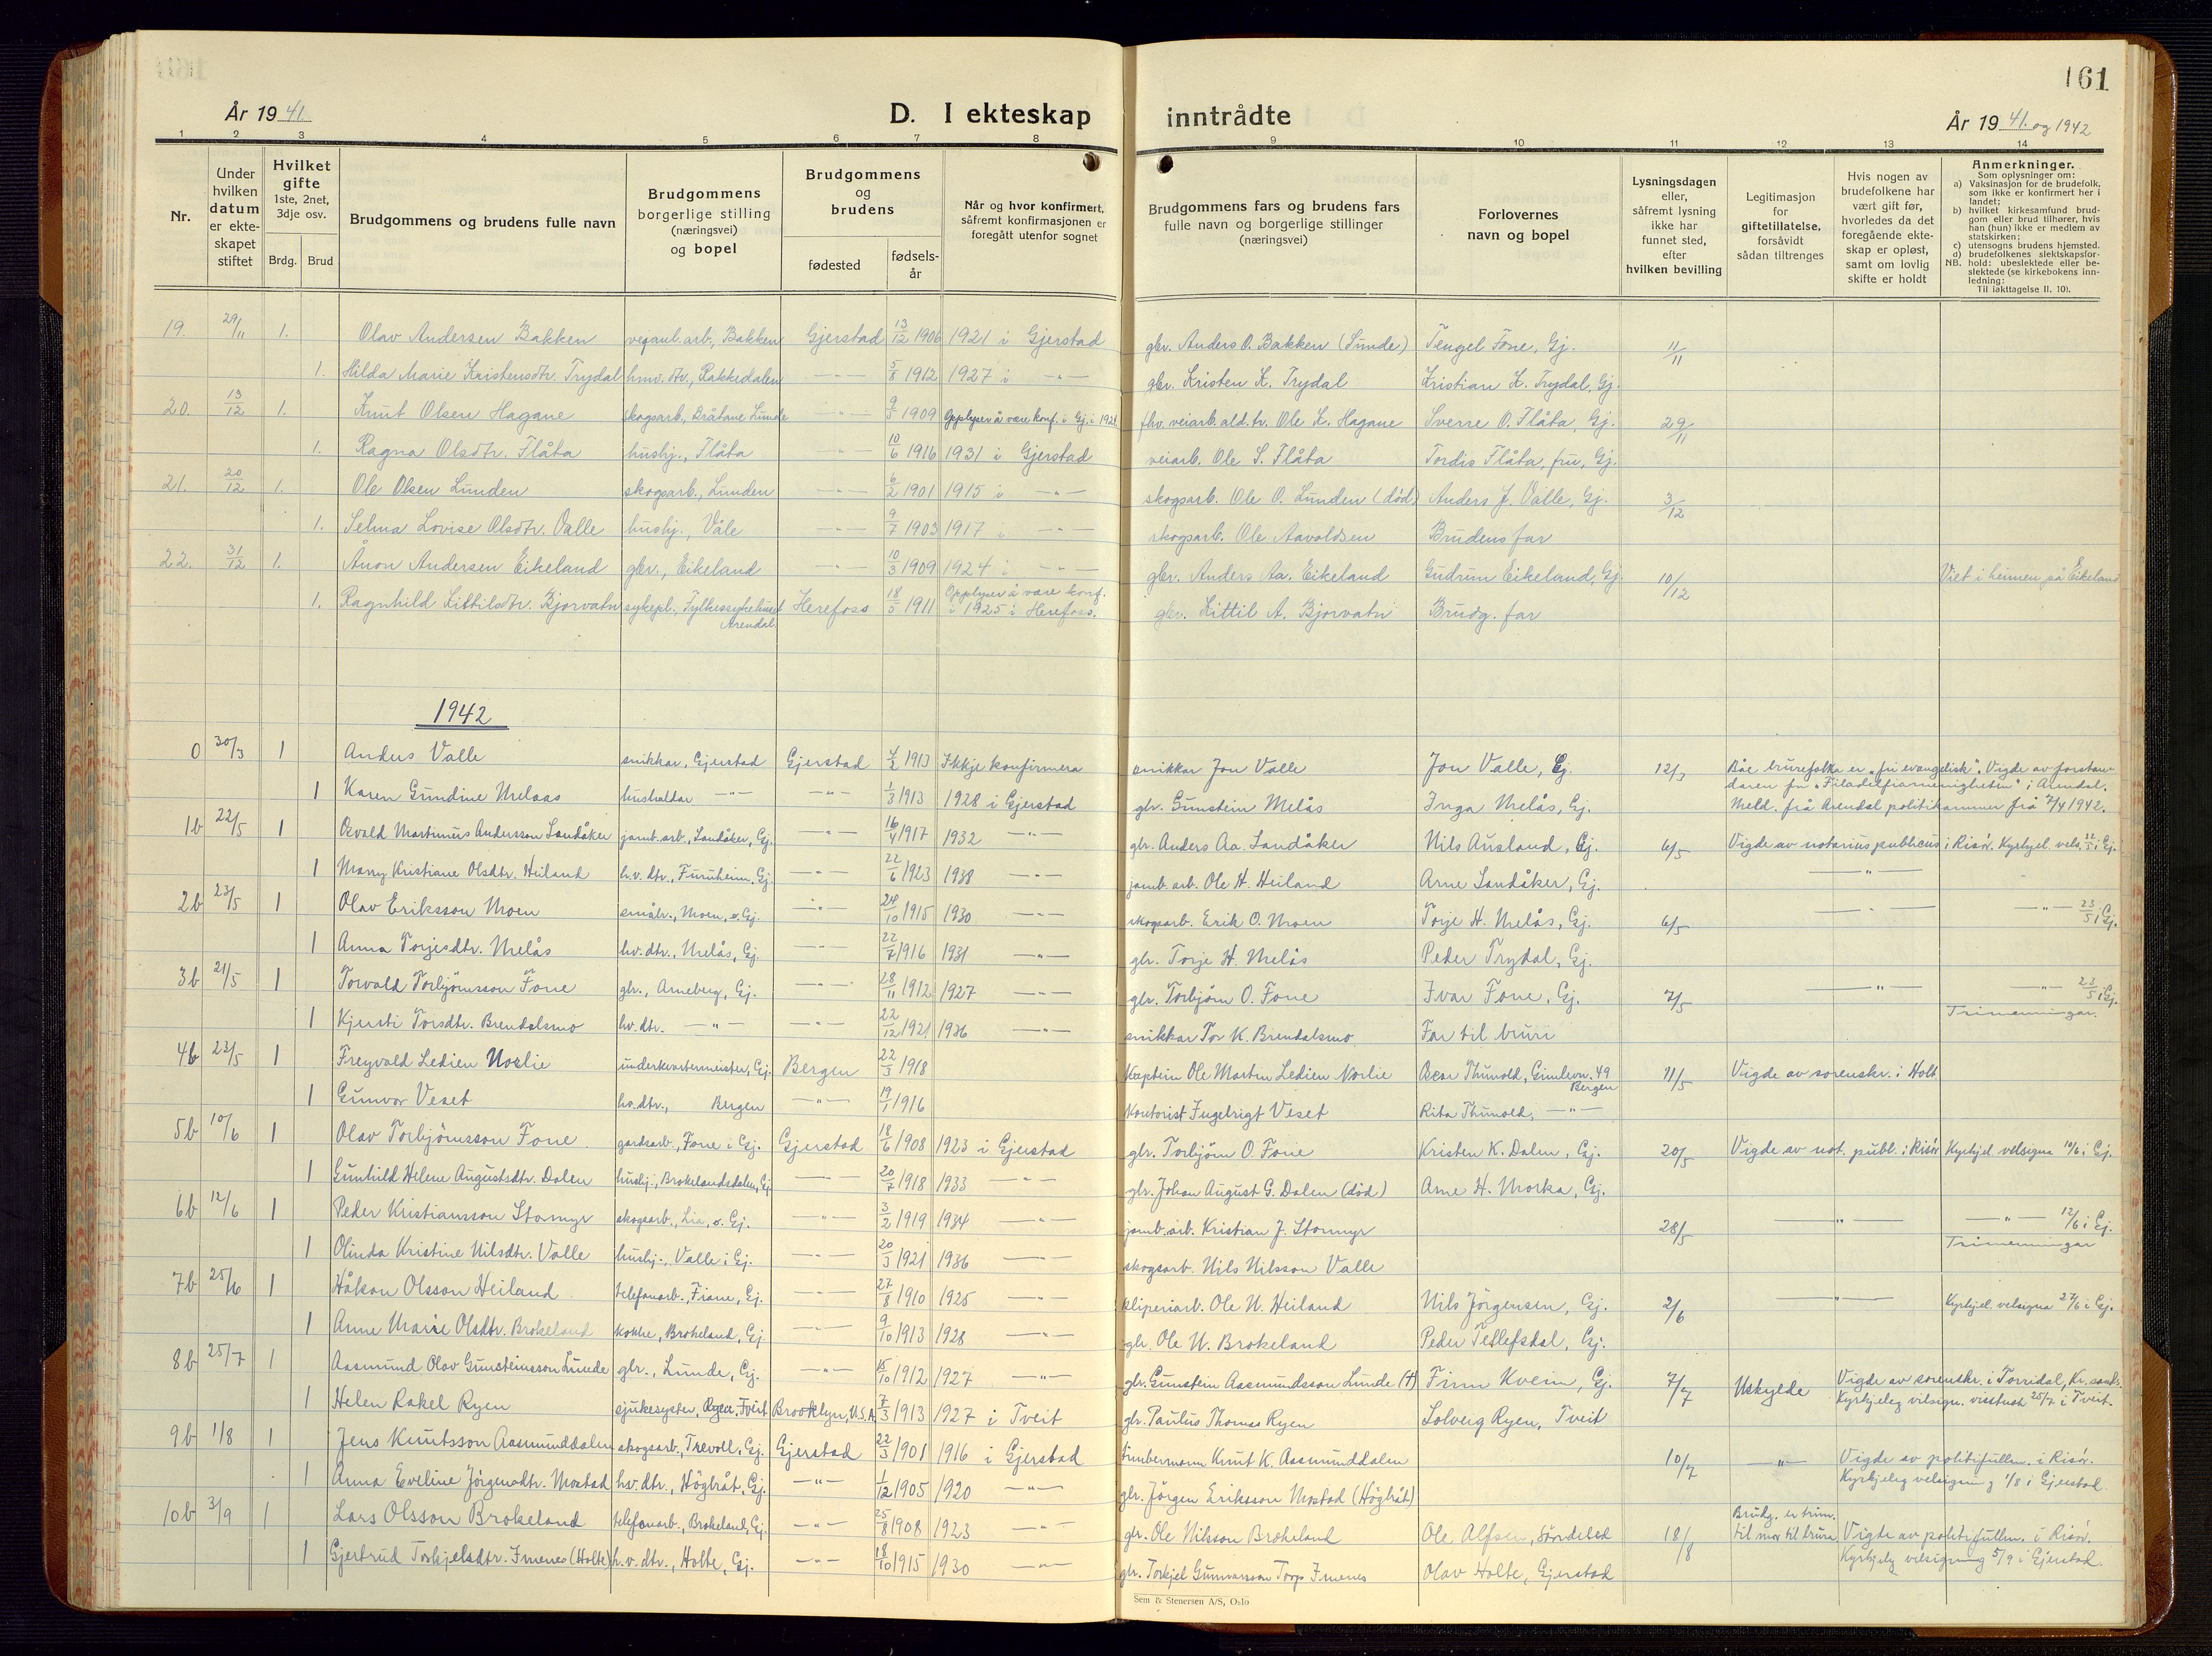 161
År 1941.
D. I ekteskap inntrådte
År 1941. og 1942
1 2 3 4 5 6 7 8 9 10 11 12 13 14
Nr.
Under hvilken datum er ekte-skapet stiftet
Hvilket gifte 1ste, 2net, 3dje osv.
Brdg. Brud
Brudgommens og brudens fulle navn
Brudgommens borgerlige stilling (næringsvei) og bopel
Brudgommens og brudens
fødested
fødsels-år
Når og hvor konfirmert, såfremt konfirmasjonen er foregått utenfor sognet
Brudgommens fars og brudens fars fulle navn og borgerlige stillinger (næringsvei)
Forlovernes navn og bopel
Lysningsdagen eller, såfremt lysning ikke har funnet sted, efter hvilken bevilling
Legitimasjon for giftetillatelse, forsåvidt sådan tiltrenges
Hvis nogen av brudefolkene har vært gift før, hvorledes da det foregående ekte-skap er opløst, samt om lovlig skifte er holdt
Anmerkninger.
Som oplysninger om:
a) Vaksinasjon for de brudefolk, som ikke er konfirmert her i landet;
b) hvilket kirkesamfund brud-gom eller brud tilhører, hvis han (hun) ikke er medlem av statskirken;
c) utensogns brudens hjemsted.
d) brudefolkenes slektskapsfor-hold: ubeslektede eller be-slektede (se kirkebokens inn-ledning;
NB.
Til iakttagelse II. 10).
19. 29/11 1. Olav Andersen Bakken veianl. arb., Bakken Gjerstad 13/12 1906 1921 i Gjerstad gbr. Anders O. Bakken (Lunde) Tengel Fone, Gj. 11/11
1. Hilda Marie Kristensdtr. Trydal hmv. dtr., Rakkedalen -"- 5/8 1912 1927 i -"- gbr. Kristen K. Trydal Kristian K. Trydal, Gj.
20. 13/12 1. Knut Olsen Hagane skogsarb., Bråtane Lunde -"- 9/3 1909 Opplyser å være konf. i Gj. i 192 fhv. veiarb. ald. tr. Ole K. Hagane Sverre O. Flåta, Gj. 29/11
1. Ragna Olsdtr. Flåta hushj., Flåta -"- 10/6 1916 1931 i Gjerstad veiarb. Ole S. Flåta Tordis Flåta, fru, Gj.
21. 20/12 1. Ole Olsen Lunden skogsarb., Lunden -"- 6/2 1901 1915 i -"- skogsarb. Ole O. Lunden (død) Anders J. Valle, Gj. 3/12
1. Selma Lovise Olsdtr. Valle hushj., Våle -"- 9/7 1903 1917 i -"- skogsarb. Ole Aavoldsen Brudens far
22. 31/12 1. Ånon Andersen Eikeland gbr., Eikeland -"- 10/3 1909 1924 i -"- gbr. Anders Aa. Eikeland Gudrun Eikeland, Gj. 10/12 Viet i heimen på Eikeland
1. Ragnhild Kittilsdtr. Bjorvatn sykepl., Fylkessykehuset Arendal Herefoss 18/5 1911 Opplyser å være konf. i 1925 i Herefoss. gbr. Kittil A. Bjorvatn Brudg. far
1942
0 30/3 1 Anders Valle snikkar, Gjerstad Gjerstad 4/2 1913 Ikkje konfirmera snikkar Jon Valle Jon Valle, Gj. 12/3 Båe brurefolka er "fri evangelisk". Vigde av forstan-
1 Karen Gundine Melaas hushaldar -"- -"- 1/3 1913 1928 i Gjerstad gbr. Gunstein Melås Inga Melås, Gj. daren for "Filadelfiamenigheten" i Arendal. Meld. frå Arendal politikammer frå 7/4 1942.
1b 22/5 1 Osvald Martinius Andersson Landåker jamb. arb., Landåker, Gj. -"- 16/4 1917 1932 -"- gbr. Anders Aa. Landåker Nils Ausland, Gj. 6/5 Vigde av notarius publicus i Risør. Kyrkjel. vels. 22/5 i Gj.
1 Marry Kristiane Olsdtr. Heiland h.v. dtr., Furuheim, Gj. -"- 22/6 1923 1938 -"- jamb. arb. Ole H. Heiland Arne Landåker, Gj. -"-
2b 23/5 1 Olav Eriksson Moen småbr., Moen, v. Gj. -"- 24/10 1915 1930 -"- skogsarb. Erik O. Moen Torje H. Melås, Gj. 6/5 -"- -"- 23/5 i Gj.
1 Anna Torjesdtr. Melås hv. dtr., Melås, Gj. -"- 22/7 1916 1931 -"- gbr. Torje H. Melås Peder Trydal, Gj.
3b 21/5 1 Torvald Torbjörnsson Fone gbr., Arneberg, Gj. -"- 28/11 1912 1927 -"- gbr. Torbjörn O. Fone Ivar Fone, Gj. 7/5 -"- -"- 23/5 i Gj. Trimenningar.
1 Kjersti Torsdtr. Brendalsmo hv. dtr. -"- -"- 22/12 1921 1936 -"- snikkar Tor K. Brendalsmo Far til bruri
4b 23/5 1 Freyvald Ledien Norlie underkvartermeister, Gj. Bergen 22/3 1918 Kaptein Ole Martin Ledien Norlie Oscar Thunold, Gimlevn. 49 Bergen 11/5 Vigde av sorenskr. i Holt
1 Gunvor Veset hv. dtr., Bergen -"- 19/1 1916 Kontorist Ingebrigt Veset Rita Thunold, -"-
5b 10/6 1 Olav Torbjörnsson Fone gardsarb., Fone i Gj. Gjerstad 18/6 1908 1923 i Gjerstad gbr. Torbjörn O. Fone Kristen K. Dalen, Gj. 20/5 Vigde av not. publ. i Risör Kyrkjel. velsigna 10/6 i Gj.
1 Gunhild Helene Augustsdtr. Dalen hushj., Brokelandsdalen, Gj -"- 20/7 1918 1933 -"- gbr. Johan August G. Dalen (död) Arne H. Morka, Gj.
6b 12/6 1 Peder Kristiansson Stormyr skogsarb., Lia, v. Gj. -"- 3/2 1919 1934 -"- jamb. arb. Kristian J. Stormyr 28/5 -"- -"- 12/6 i Gj. Trimenningar
1 Olinda Kristine Nilsdtr. Valle hushj., Valle i Gj. -"- 20/3 1921 1936 -"- skogsarb. Nils Nilsson Valle
7b 25/6 1 Håkon Olsson Heiland telefonarb., Fiane, Gj. -"- 27/8 1910 1925 -"- sliperiarb. Ole N. Heiland Nils Jörgensen, Gj. 2/6 -"- Kyrkjel. velsigna 27/6 i Gj.
1 Anne Marie Olsdtr. Brokeland kokke, Brokeland, Gj. -"- 9/10 1913 1928 -"- gbr. Ole N. Brokeland Peder Tellefsdal, Gj.
8b 25/7 1 Aasmund Olav Gunsteinsson Lunde gbr., Lunde, Gj. -"- 15/10 1912 1927 -"- gbr. Gunstein Aasmundsson Lunde (†) Finn Kveim, Gj. 7/7 Uskylde Vigde av sorenskr. i Torridal, Kr.sand.
1 Helen Rakel Ryen sjukesyster, Ryen, Tveit Brooklyn, U.S.A. 7/3 1913 1927 i Tveit gbr. Paulus Thomas Ryen Solveig Ryen, Tveit Kyrkjeleg vilsign. 25/7 i Tveit.
9b 1/8 1 Jens Knutsson Aasmunddalen skogsarb., Trevoll, Gj. Gjerstad 22/3 1901 1916 i Gjerstad tömbermann Knut K. Aasmunddalen 10/7 -"- Vigde av politifullm. i Risör.
1 Anna Eveline Jörgensdtr. Mostad hv. dtr., Högbråt, Gj. -"- 1/12 1905 1920 -"- gbr. Jörgen Eriksson Mostad (Högbråt) Kyrkjeleg velsigning 1/8 i Gjerstad.
10b 3/9 1 Lars Olsson Brokeland telefonarb., Brokeland, Gj. -"- 25/8 1908 1923 -"- gbr. Ole Nilsson Brokeland Ole Alfsen, Söndeled 18/8 Brudg. er trim. til mor til brura Vigde av politifullm. i Risör.
1 Gjertrud Torkjelsdtr. Imenes (Holte) h.v. dtr., Holte, Gj. -"- 18/10 1915 1930 -"- gbr. Torkjel Gunnarsson Torp Imenes Olav Holte, Gjerstad Kyrkjeleg velsigning 5/9 i Gjerstad.
Sem & Stenersen A/S, Oslo